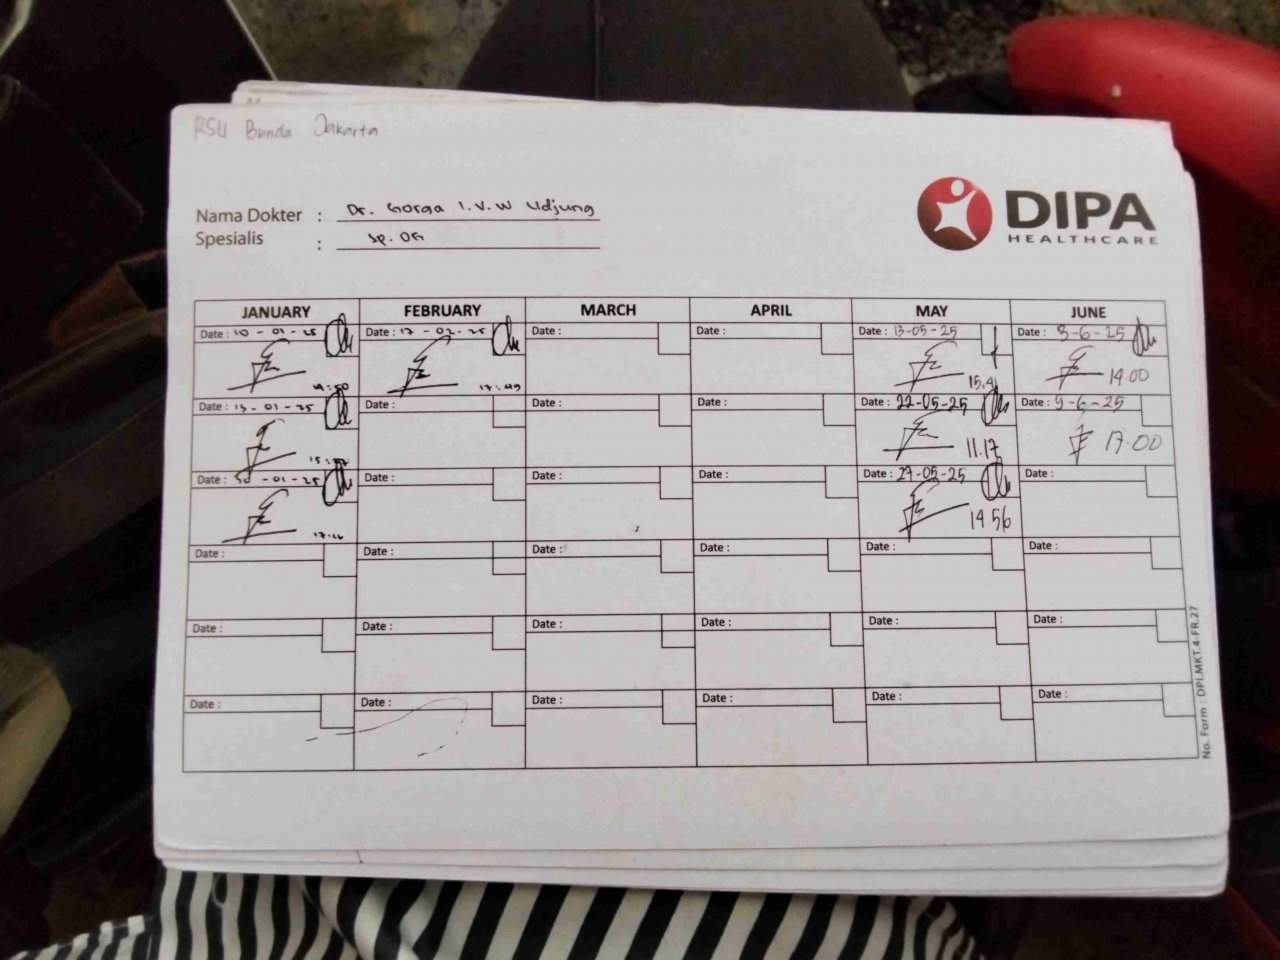 RSU Bunda Jakarta
DIPA
HEALTHCARE
Nama Dokter : Dr. Gorga I.V.W Udjung
Spesialis : Sp. OG
JANUARY FEBRUARY MARCH APRIL MAY JUNE
Date : 10 - 01 - 25 Date : 17 - 02 - 25 Date : Date : Date : 13-05-25 Date : 3-6-25
17:49 15.41 14.00
Date : 13 - 01 - 25 Date : Date : Date : Date : 22-05-25 Date : 9-6-25
11.17 17.00
Date : 30 - 01 - 25 Date : Date : Date : Date : 27-05-25 Date :
14 56
Date : Date : Date : Date : Date : Date :
Date : Date : Date : Date : Date : Date :
Date : Date : Date : Date : Date : Date :
No. Form : DPI.MKT.4-FR.27